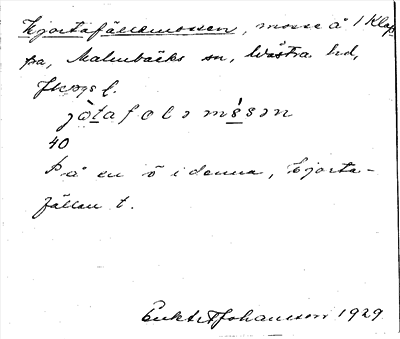 Hjortafällemossen, mosse å 1 Klap
pa, Malmbäcks sn, Västra hd,
Jkpgs l.
jòtafɵlɘmósɘn
40
På en ö i denna, Hjorta-
fällan t.
Enkht Johansson 1929